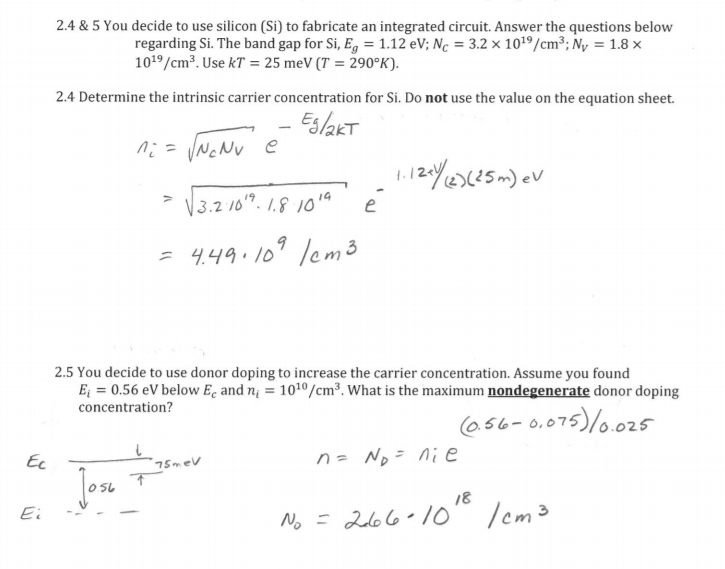 2.4 & 5 You decide to use silicon (Si) to fabricate an integrated circuit. Answer the questions below
regarding Si. The band gap for Si, E_g = 1.12 eV; N_C = 3.2 × 10^19/cm^3; N_V = 1.8 ×
10^19/cm^3. Use kT = 25 meV (T = 290°K).
2.4 Determine the intrinsic carrier concentration for Si. Do not use the value on the equation sheet.
n_i = √(N_C N_V) e^(-Eg/2kT)
= √(3.2·10^19 · 1.8 10^19) e^(-1.12eV/(2)(25m)eV)
= 4.49·10^9 /cm^3
2.5 You decide to use donor doping to increase the carrier concentration. Assume you found
E_i = 0.56 eV below E_c and n_i = 10^10/cm^3. What is the maximum nondegenerate donor doping
concentration?
n = N_D = n_i e^((0.56-0.075)/0.025)
Ec
75meV
0.56
Ei
N_D = 2.66·10^18 /cm^3